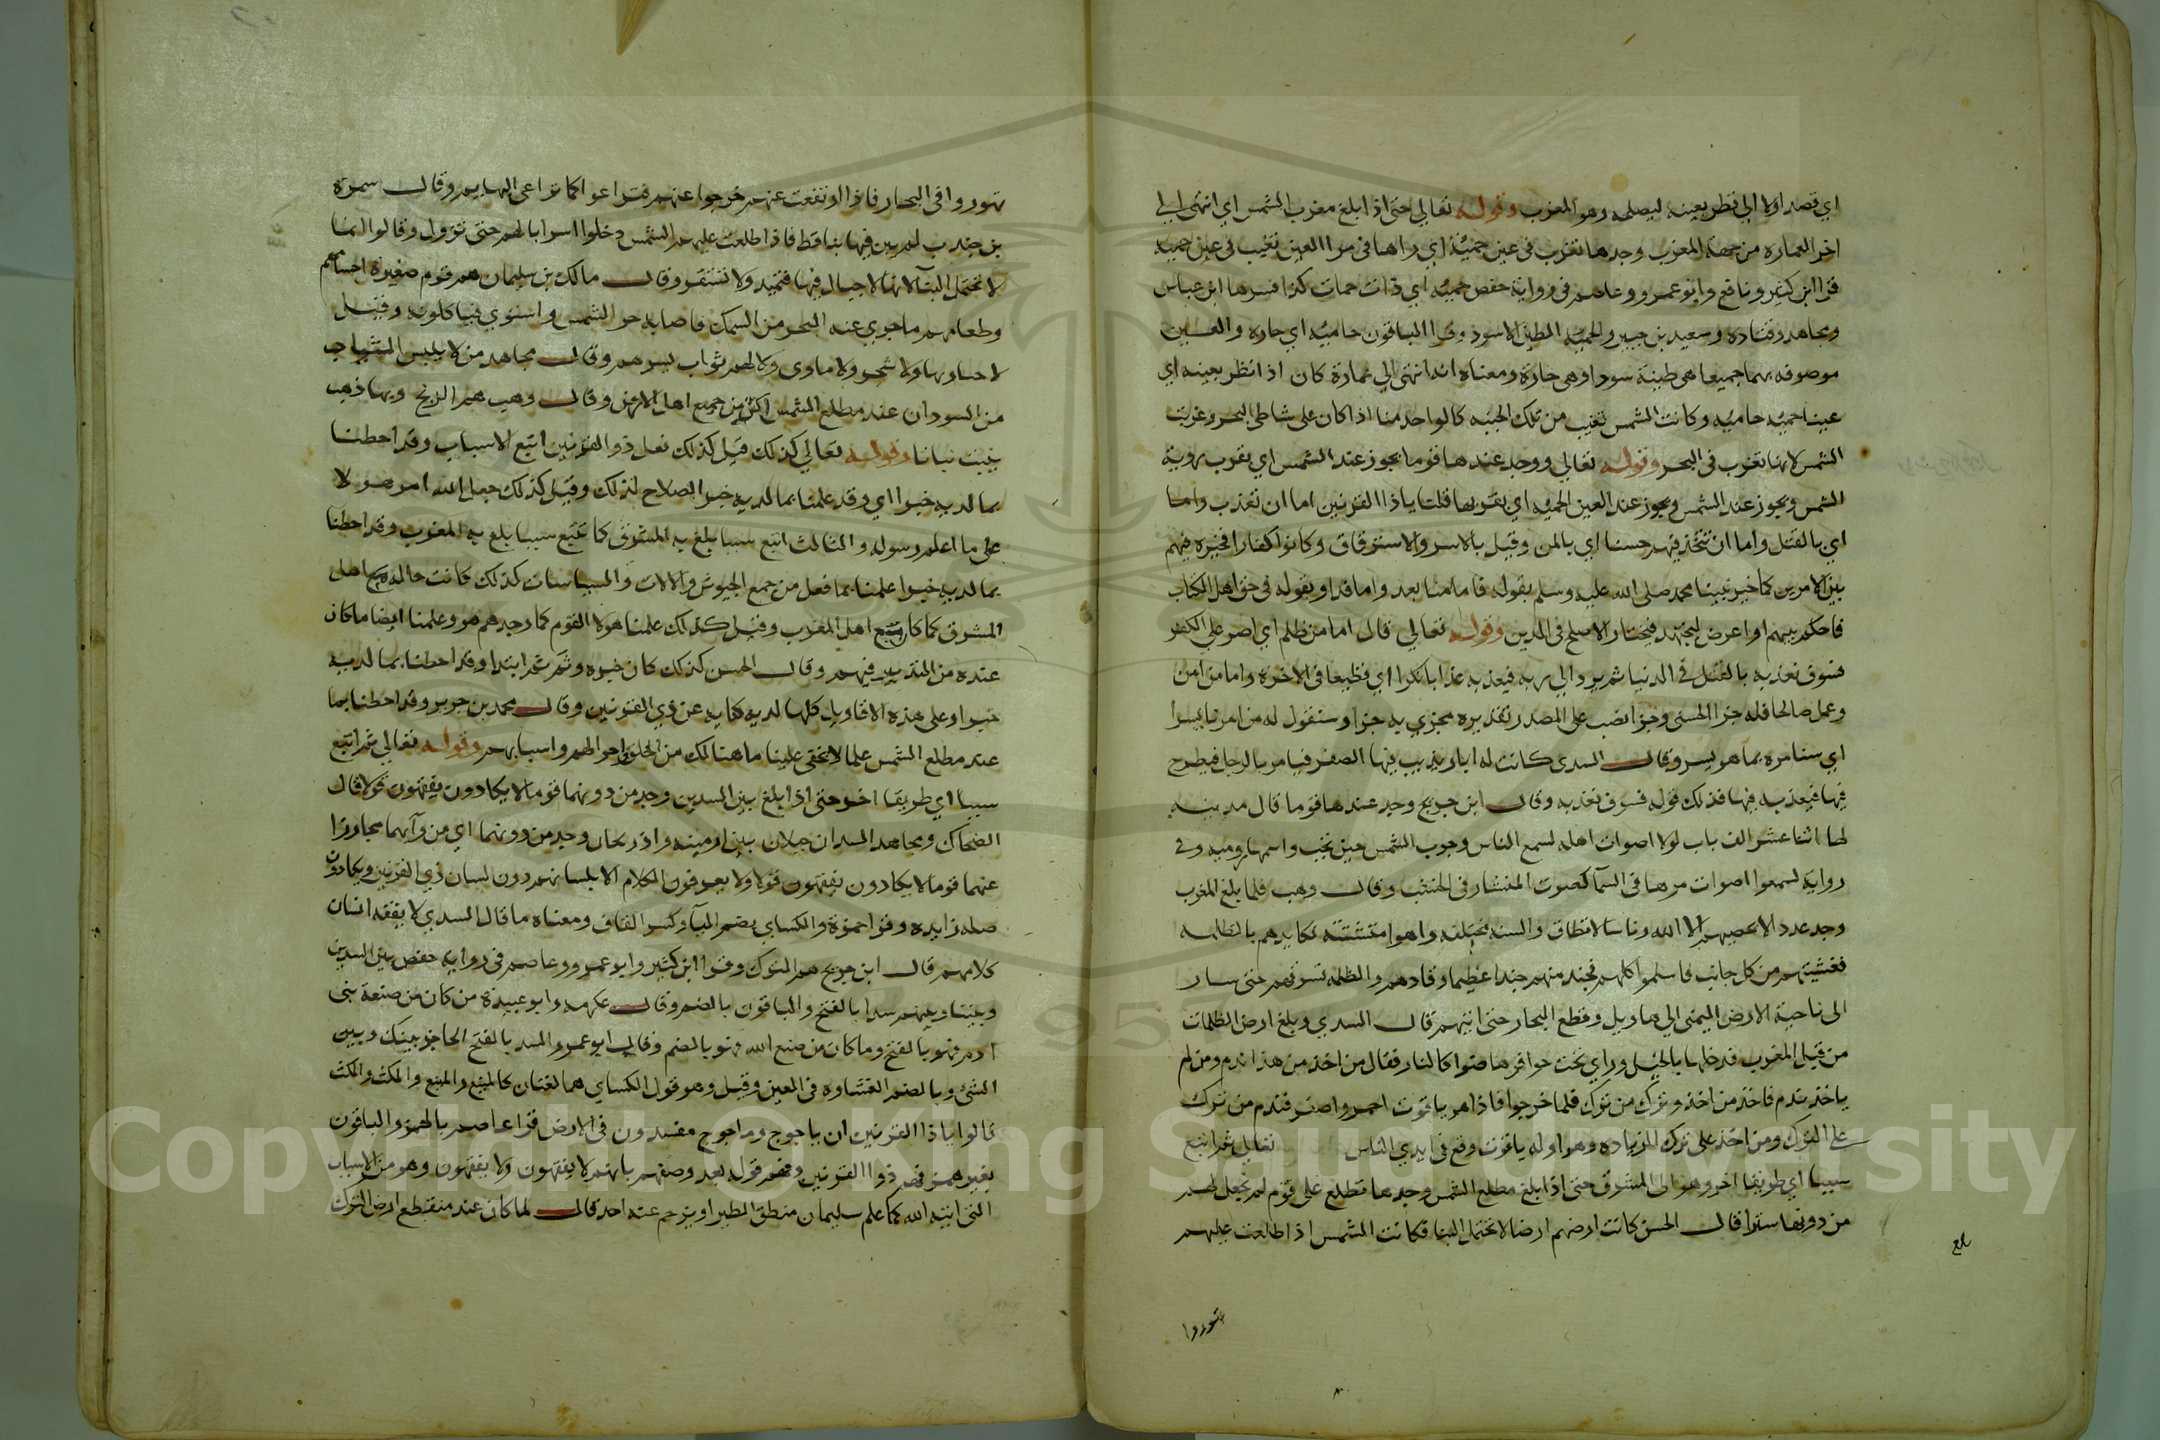 اي قصد اولا الي قطر بعينه ليصلحه وهو المغرب وقوله تعالي حتي اذا بلغ مغرب الشمس اي انتهي الي
اخر العماره من جهة المغرب وجدها تغرب في عين حميه اي راها في مرا العين تغيب في عين حميه
قرا ابن كثير ونافع وابو عمرو وعاصم في رواية حفص حميه اي ذات حمات كذا فسرها ابن عباس
ومجاهد وقتاده وسعيد بن جبير والحميه الطين الاسود وقرا الباقون حاميه اي حاره والعين
موصوفه بهما جميعا هي طينة سودا وهي حارة ومعناه انه انتهي الي عمارة كان اذا نظر بعينه اي
عينا حميه حاميه وكانت الشمس تغيب من تلك الجنبه كالواحد منا اذا كان علي شاطي البحر وغربت
الشمس لانها تغرب في البحر وقوله تعالي ووجد عندها قوما يجوز عند الشمس اي بقرب روية
الشمس ويجوز عند الشمس ويجوز عند العين الحميه اي بقربها قلنا ياذا القرنين اما ان تعذب واما
اي بالقتل واما ان تتخذ فيهم حسنا اي بالمن وقيل بالاسر والاسترقاق وكانوا كفارا فخيره فيهم
بين الامرين كما خير نبينا محمد صلي الله عليه وسلم بقوله فاما منا بعد واما فدا وبقوله في حق اهل الكتاب
فاحكم بينهم او اعرض ليجتهد فيختار الاصلح في الدين وقوله تعالي قال اما من ظلم اي اصر علي الكفر
فسوف نعذبه بالقتل في الدنيا ثم يرد الي ربه فيعذبه عذابا نكرا اي فظيعا في الاخرة واما من امن
وعمل صالحا فله جزا الحسني وجزا نصب علي المصدر تقديره مجزي به جزا وسنقول له من امرنا يسرا
اي سنامره بما هو يسر وقال السدي كانت له ابار يذيب فيها الصفر فيامر بالرجل فيطرح
فيها فيعذبه فيها فذلك قوله فسوف نعذبه وقال ابن جريج وجد عندها قوما قال مدينه
لها اثنا عشر الف باب لولا اصوات اهله لسمع الناس وجوب الشمس حين تجب واسمها روميه وفي
رواية لسمعوا اصوات مرها في السما كصوت المنشار في الخشب وقال وهب فلما بلغ المغرب
وجد عددا لا يحصيهم الا الله وناسا لا تطاق والسنه مختلفه واهوا متشتته فكايدهم بالظلمه
فغشيتهم من كل جانب فاسلموا كلهم فجند منهم جندا عظيما وقادهم والظلمه تسوقهم حتي سار
الى ناحية الارض اليمني الي هاويل وقطع البحار حتي انتهم قال السدي وبلغ ارض الظلمات
من قبل المغرب فدخلها بالخيل وراي تحت حوافرها ضوا كالنار فقال من اخذ من هذا ندم ومن لم
ياخذ ندم فاخذ من اخذ وترك من ترك فلما خرجوا فاذا هو ياقوت احمر واصفر فندم من ترك
علي الترك ومن اخذ علي ترك الزياده وهو اوله ياقوت وقع في ايدي الناس تعالي ثم اتبع
سببا اي طريقا اخر وهو الي المشرق حتي اذا بلغ مطلع الشمس وجدها تطلع علي قوم لم نجعل لهم
من دونها سترا قال الحسن كانت ارضهم ارضا لا تحتمل البنا فكانت الشمس اذا طلعت عليهم
بلغ
تهوروا
تهوروا في البحار فاذا ارتفعت عنهم خرجوا عنهم فتراعوا كما تراعي البهايم وقال سمرة
بن جندب لم يبن فيها بنا قط فاذا طلعت عليهم الشمس دخلوا اسرابا لهم حتي تزول وقالوا انها
لا تحتمل البنا لانها لا جبال فيها فتميد ولا تستقر وقال مالك بن سليمان هم قوم صغيرة اجسامهم
وطعامهم ما جري عنه البحر من السمك فاصابه حر الشمس واستوي فياكلونه وقيل
لا حساو بها ولا شجر ولا ماوى ولا لهم ثواب تسرهم وقال مجاهد من لا يلبس الثياب
من السودان عند مطلع الشمس اكثر من جميع اهل الارض وقال وهب هم الزنج وبها ذهب
ينبت نباتا وقوله تعالي كذلك قيل كذلك نعل ذو القرنين اتبع الاسباب وقد احطنا
بما لديه خبرا اي وقد علمنا بما لديه خبرا لصلاح لذلك وقيل كذلك جعل الله امر هولا
علي ما اعلم رسوله والثالث اتبع سببا بلغ به المشرق كما تتبع سببا بلغ به المغرب وقد احطنا
بما لديه خبرا علمنا بما فعل من جمع الجيوش والالات والسياسات كذلك كانت حاله مع اهل
المشرق كما كان مع اهل المغرب وقيل كذلك علمنا هولا القوم كما وجدهم هو وعلمنا ايضا ما كان
عنده من التدبير فيهم وقال الحسن كذلك كان خبره وثم ثم ابتدا وقد احطنا بما لديه
خبرا وعلي هذه الاقاويل كلها لديه كنايه عن ذي القرنين وقال محمد بن جرير وقد احطنا بما
عند مطلع الشمس علما لا يخفي علينا ما هنالك من الخلق واحوالهم واسبابهم وقوله تعالي ثم اتبع
سببا اي طريقا اخر حتي اذا بلغ بين السدين وجد من دونهما قوما لا يكادون يفقهون قولا قال
الضحاك ومجاهد السدان جبلان بين ارمينه واذربيجان وجد من دونهما اي من ورآيهما مجاوزا
عنهما قوما لا يكادون يفقهون قولا ولا يعرفون الكلام الا بلسانهم دون لسان ذي القرنين ويكادون
صله زايده وقرا حمزة والكساي بضم اليآ وكسر القاف ومعناه ما قال السدي لا يفقه انسان
كلامهم قال ابن جريج هم الترك وقرا ابن كثير وابو عمرو وعاصم في رواية حفص بين السدين
وبيننا وبينهم سدا بالفتح والباقون بالضم وقال عكرمه وابو عبيدة من كان من صنعة بني
ادم فهو بالفتح وما كان من صنع الله فهو بالضم وقال ابو عمرو السد بالفتح الحاجز بينك وبين
الشي وبالضم الغشاوه في العين وقيل وهو قول الكساي هما لغتان كالمنع والمنع والمكث والمكث
قالوا ياذا القرنين ان ياجوج وماجوج مفسدون في الارض قرا عاصم بالهمز والباقون
بغير همز فهم ذوا القرنين وفهم قوله بعد وصفهم بانهم لا يفقهون ولا يفقهون وهو من الاسباب
التي اتيه الله كما علم سليمان منطق الطير او يترجم عنه احد قال لما كان عند منقطع ارض الترك